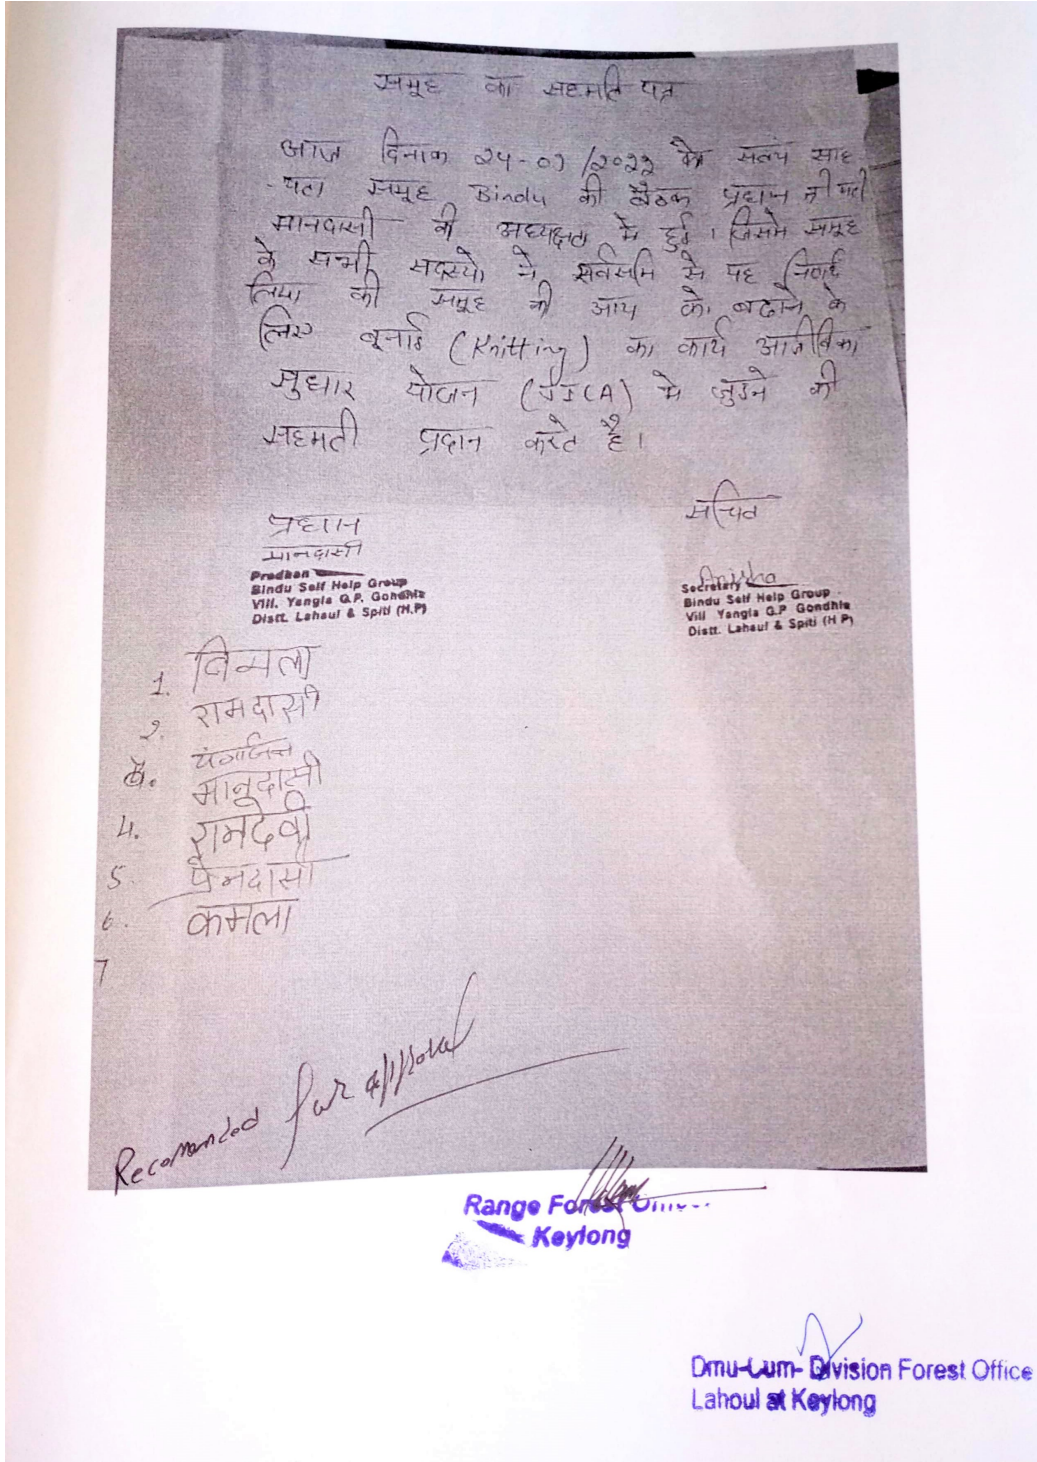 समूह का सहमति पत्र
आज दिनाक 24-01/2022 को स्वयं साह
-यता समूह Bindu की बैठक प्रधान श्रीमती
मानदासी की अध्यक्षता मे हुई। जिसमे समूह
के सभी सदस्यो ने सर्वसमि से यह निर्णय
लिया की समूह की आय को बढाने के
लिए बूनाई (Knitting) का कार्य आजीविका
सुधार योजन (JICA) मे जुडने की
सहमती प्रदान करते है।
प्रधान सचिव
मानदासी
Pradhan
Bindu Self Help Group
Vill. Yangla G.P. Gondhla
Distt. Lahaul & Spiti (H.P)
Anisha
Secretary
Bindu Self Help Group
Vill Yangla G.P Gondhla
Distt. Lahaul & Spiti (H P)
1. बिमला
2. रामदासी
3.
मानूदासी
4. रामदेवी
5. प्रेमदासी
6. कमला
7
Recommended for approval
Range Forest Officer
Keylong
Dmu-Cum- Division Forest Office
Lahoul at Keylong